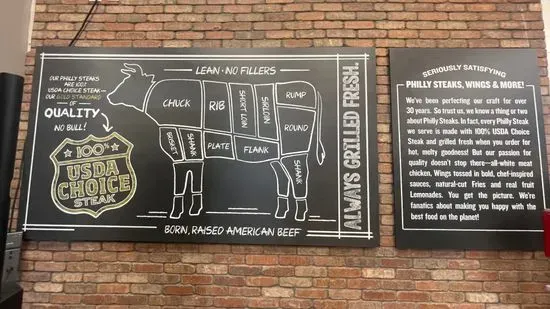 OUR PHILLY STEAKS
ARE 100%
USDA CHOICE STEAK
OUR GOLD STANDARD
OF
QUALITY.
NO BULL!
100%
USDA
CHOICE
STEAK
LEAN · NO FILLERS
CHUCK
RIB
SHORT LOIN
SIRLOIN
RUMP
ROUND
BRISKET
SHANK
PLATE
FLANK
SHANK
BORN, RAISED AMERICAN BEEF
ALWAYS GRILLED FRESH.
SERIOUSLY SATISFYING
PHILLY STEAKS, WINGS & MORE!
We've been perfecting our craft for over
30 years. So trust us, we know a thing or two
about Philly Steaks. In fact, every Philly Steak
we serve is made with 100% USDA Choice
Steak and grilled fresh when you order for
hot, melty goodness! But our passion for
quality doesn't stop there—all-white meat
chicken. Wings tossed in bold, chef-inspired
sauces, natural-cut Fries and real fruit
Lemonades. You get the picture. We're
fanatics about making you happy with the
best food on the planet!